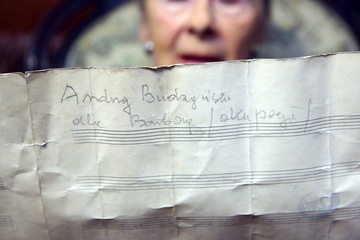 Andrzej Budzyński
dla Barbary / okupacja /